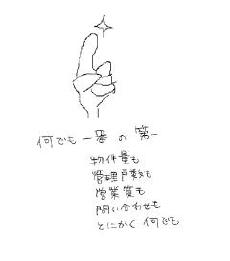 何でも一番の第一
物件量も
管理戸数も
営業質も
問い合わせも
とにかく何でも